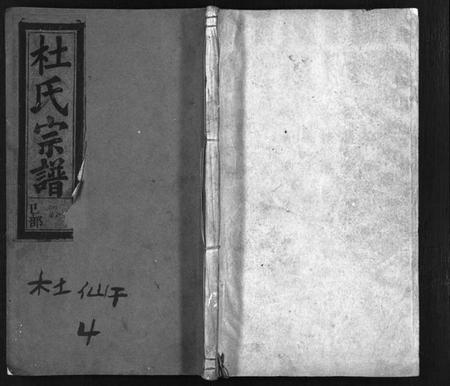 杜氏宗譜
巳部
杜仙
4